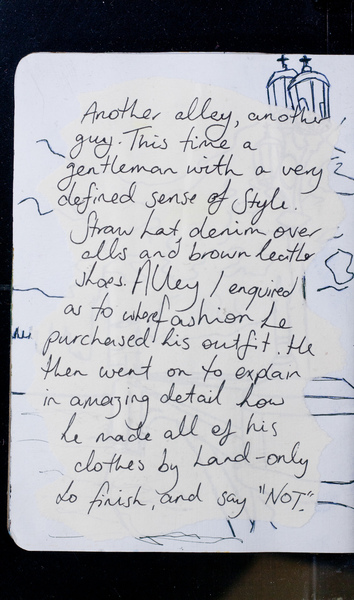 Another alley, another
guy. This time a
gentleman with a very
defined sense of Style.
Straw hat, denim over
alls and brown leather
shoes. Alley / enquired
as to where fashion he
purchased his outfit. He
then went on to explain
in amazing detail how
he made all of his
clothes by hand-only
to finish, and say "NOT".